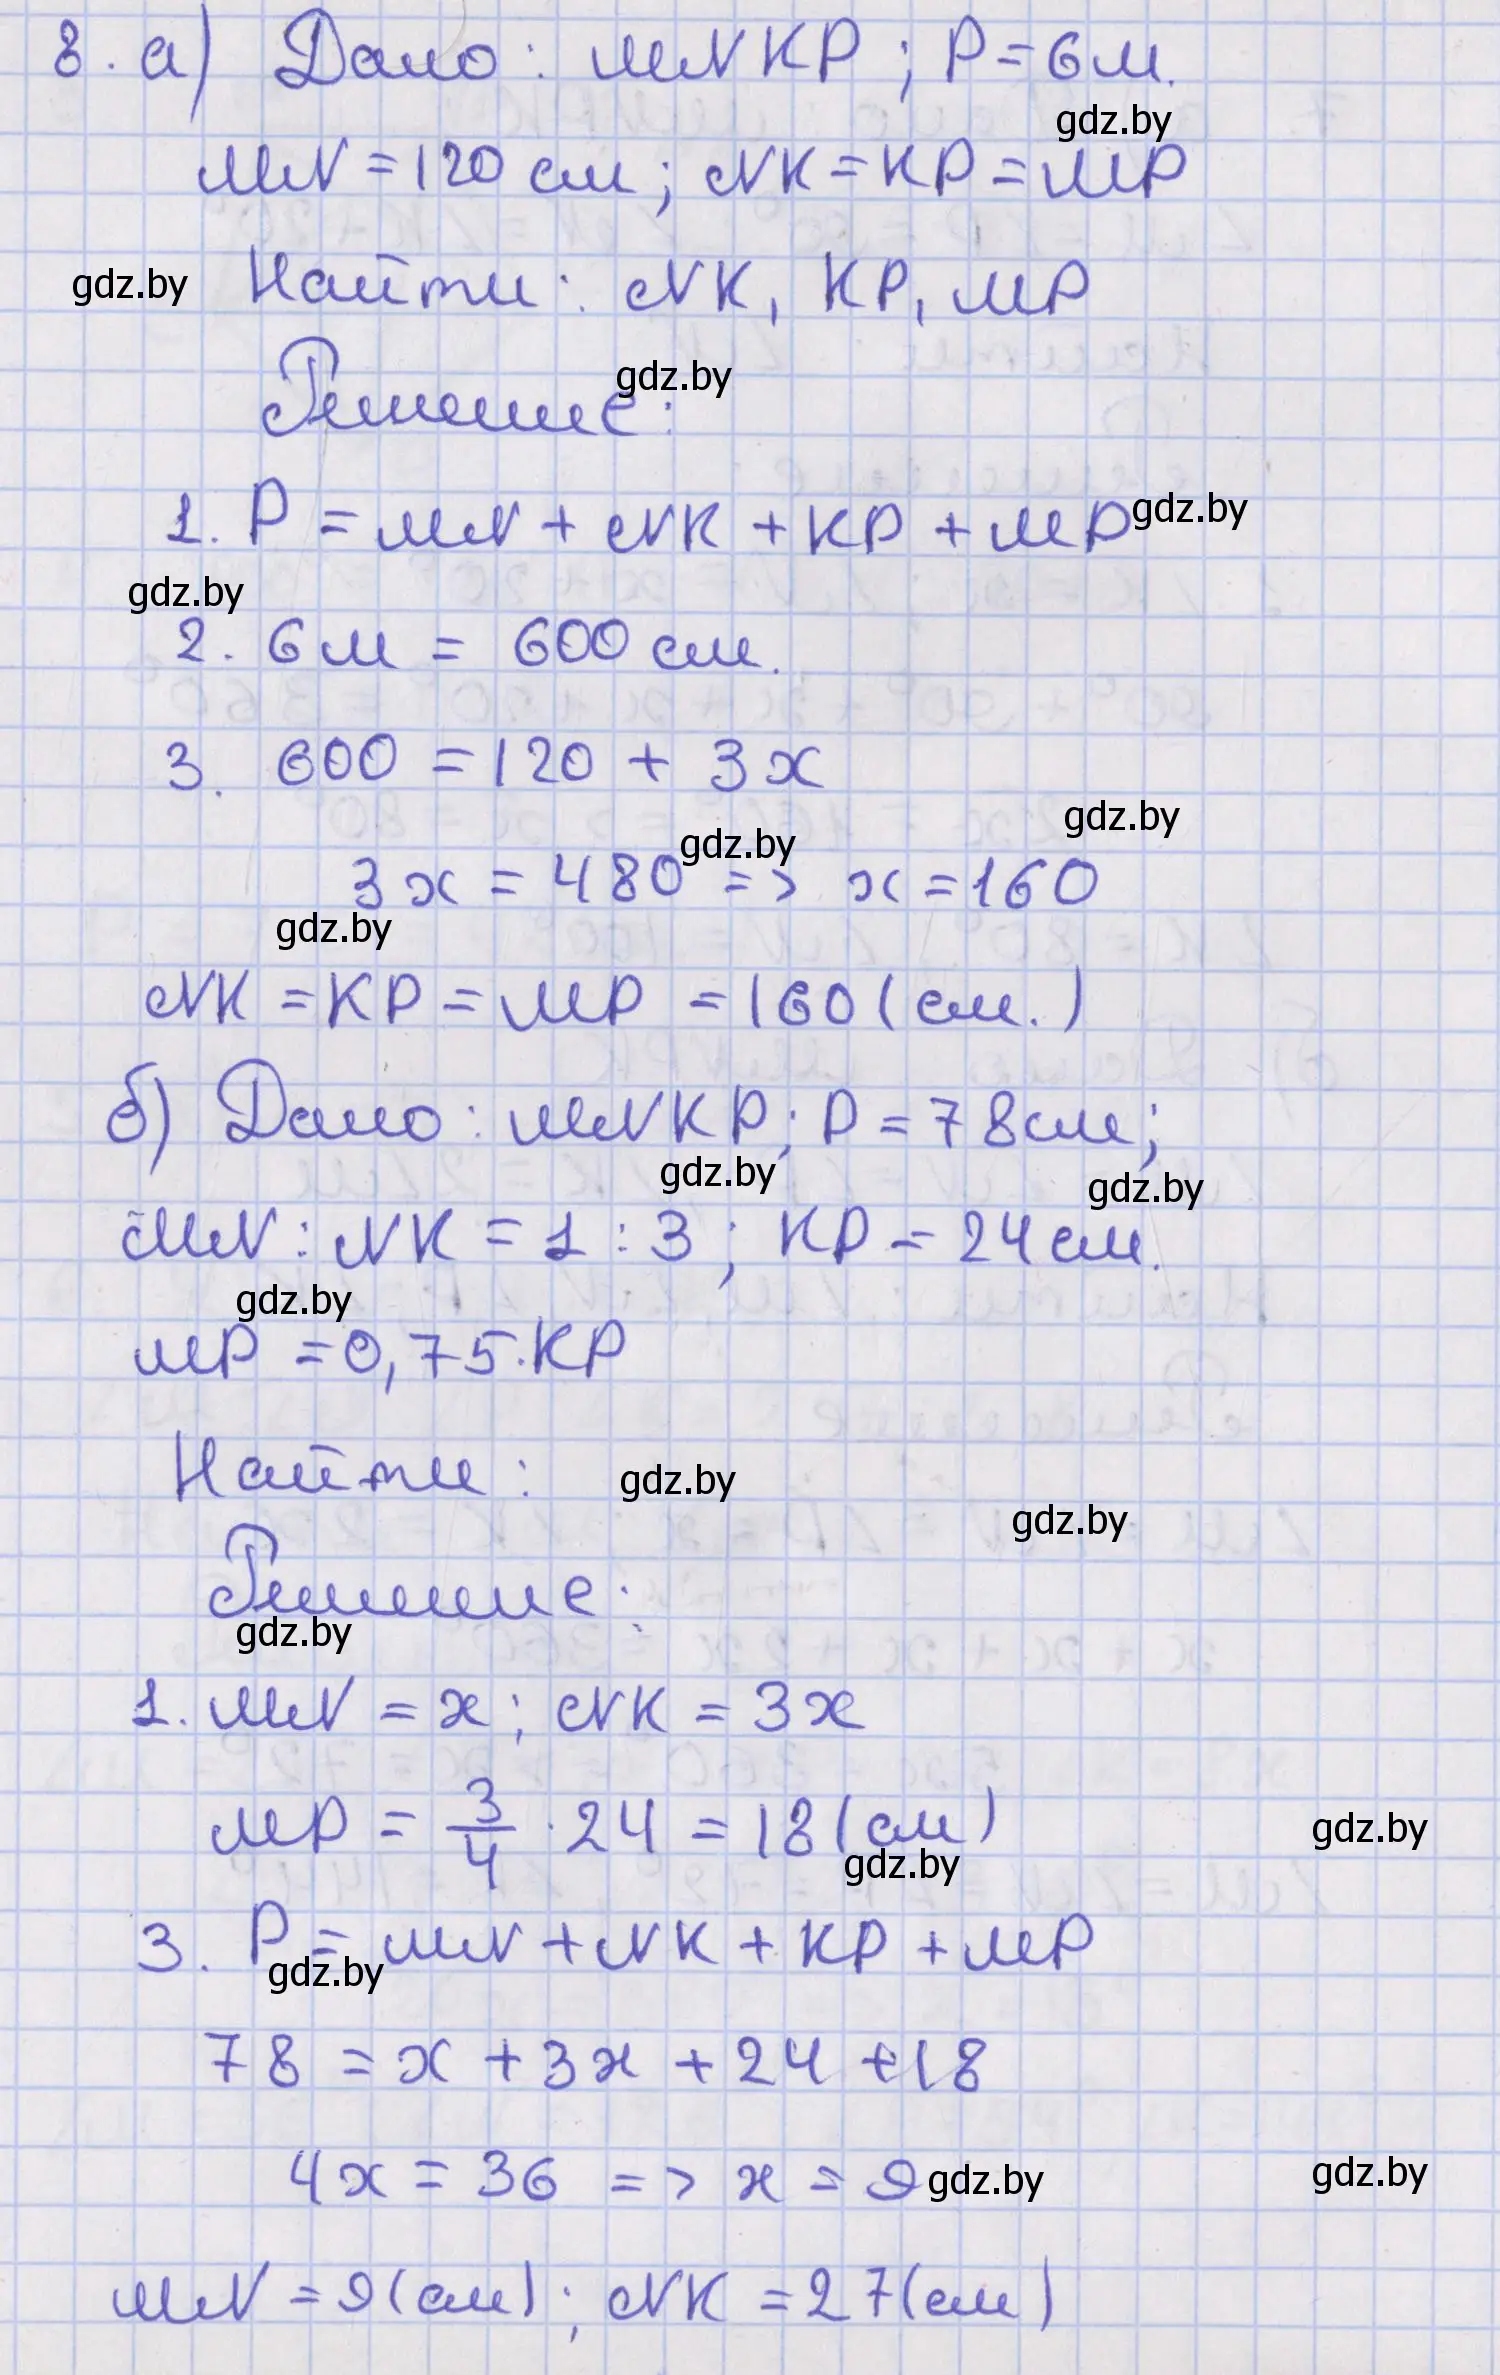 8. а) Дано: MNKP; P=6м.
gdz.by
MN = 120 см; NK = KP = MP
gdz.by Найти: NK, KP, MP
gdz.by
Решение:
1. P = MN + NK + KP + MP gdz.by
gdz.by
2. 6 м = 600 см.
3. 600 = 120 + 3x
gdz.by gdz.by
3x = 480 => x = 160
gdz.by
NK = KP = MP = 160 (см.)
б) Дано: MNKP; P = 78 см;
gdz.by gdz.by
MN : NK = 1 : 3; KP = 24 см.
gdz.by
MP = 0,75·KP
Найти: gdz.by
gdz.by
Решение:
gdz.by
1. MN = x; NK = 3x
MP = 3/4 · 24 = 18 (см) gdz.by
gdz.by
3. P = MN + NK + KP + MP
gdz.by
78 = x + 3x + 24 + 18
4x = 36 => x = 9 gdz.by gdz.by
MN = 9 (см); NK = 27 (см)